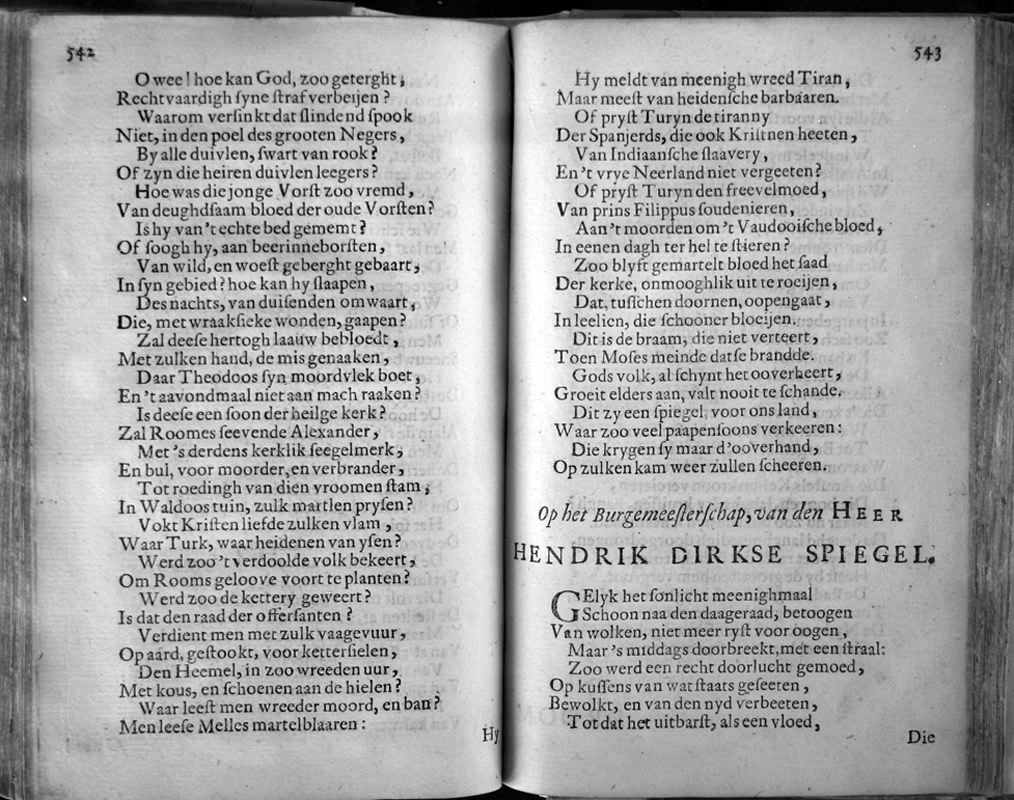 542
O wee! hoe kan God, zoo geterght,
Rechtvaardigh ſyne ſtraf verbeijen?
Waarom verſinkt dat ſlindend ſpook
Niet, in den poel des grooten Negers,
By alle duivlen, ſwart van rook?
Of zyn die heiren duivlen leegers?
Hoe was die jonge Vorſt zoo vremd,
Van deughdſaam bloed der oude Vorſten?
Is hy van 't echte bed gememt?
Of ſoogh hy, aan beerinneborſten,
Van wild, en woeſt geberght gebaart,
In ſyn gebied? hoe kan hy ſlaapen,
Des nachts, van duiſenden omwaart,
Die, met wraakſieke wonden, gaapen?
Zal deeſe hertogh laauw bebloedt,
Met zulken hand, de mis genaaken,
Daar Theodoos ſyn moordvlek boet,
En 't aavondmaal niet aan mach raaken?
Is deeſe een ſoon der heilge kerk?
Zal Roomes ſeevende Alexander,
Met 's derdens kerklik ſeegelmerk,
En bul, voor moorder, en verbrander,
Tot roedingh van dien vroomen ſtam,
In Waldoos tuin, zulk martlen pryſen?
Vokt Kriſten liefde zulken vlam,
Waar Turk, waar heidenen van yſen?
Werd zoo 't verdoolde volk bekeert,
Om Rooms geloove voort te planten?
Werd zoo de kettery geweert?
Is dat den raad der offerſanten?
Verdient men met zulk vaagevuur,
Op aard, geſtookt, voor ketterſielen,
Den Heemel, in zoo wreeden uur,
Met kous, en ſchoenen aan de hielen?
Waar leeſt men wreeder moord, en ban?
Men leeſe Melles martelblaaren:
Hy
543
Hy meldt van meenigh wreed Tiran,
Maar meeſt van heidenſche barbaaren.
Of pryſt Turyn de tiranny
Der Spanjerds, die ook Kriſtnen heeten,
Van Indiaanſche ſlaavery,
En 't vrye Neerland niet vergeeten?
Of pryſt Turyn den freevelmoed,
Van prins Filippus ſoudenieren,
Aan 't moorden om 't Vaudooiſche bloed,
In eenen dagh ter hel te ſtieren?
Zoo blyft gemartelt bloed het ſaad
Der kerke, onmooghlik uit te roeijen,
Dat, tuſſchen doornen, oopengaat,
In leelien, die ſchooner bloeijen.
Dit is de braam, die niet verteert,
Toen Moſes meinde datſe brandde.
Gods volk, al ſchynt het ooverheert,
Groeit elders aan, valt nooit te ſchande.
Dit zy een ſpiegel, voor ons land,
Waar zoo veel paapenſoons verkeeren:
Die krygen ſy maar d'ooverhand,
Op zulken kam weer zullen ſcheeren.
Op het Burgemeeſterſchap, van den HEER
HENDRIK DIRKSE SPIEGEL.
GElyk het ſonlicht meenighmaal
Schoon naa den daageraad, betoogen
Van wolken, niet meer ryſt voor oogen,
Maar 's middags doorbreekt, met een ſtraal:
Zoo werd een recht doorlucht gemoed,
Op kuſſens van wat ſtaats geſeeten,
Bewolkt, en van den nyd verbeeten,
Tot dat het uitbarſt, als een vloed,
Die